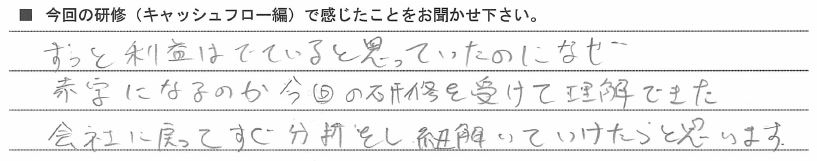 ■ 今回の研修（キャッシュフロー編）で感じたことをお聞かせ下さい。
ずっと利益はでていると思っていたのになぜ
赤字になるのか今回の研修を受けて理解できた
会社に戻ってすぐ分析をし紐解いていけたらと思います